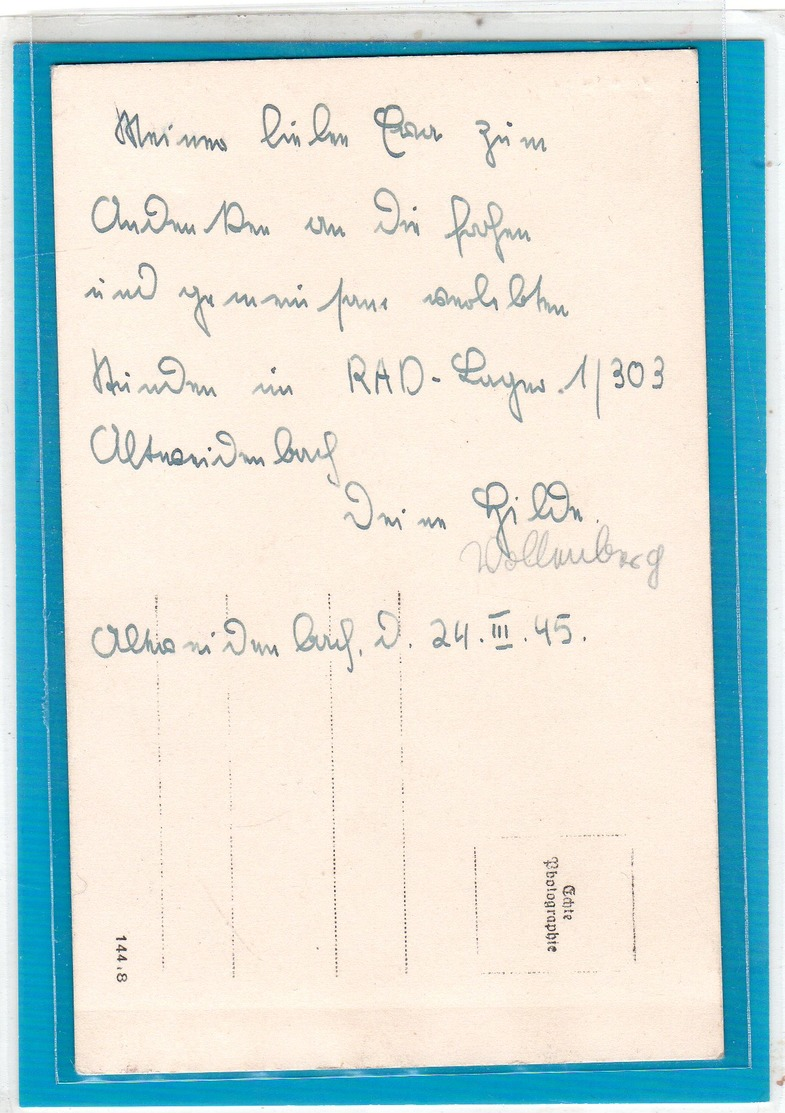 Meiner lieben zum
Andenken an die frohen
und gemeinsam verlebten
Stunden im RAD-Lager 1/303
Altweidenbach
Deine Hilde.
Wollenberg
Altweidenbach, d. 24.III.45.
Echte
Photographie
144.8